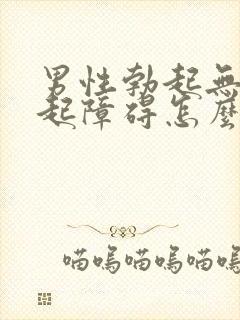 男性勃起無
起障碍怎麼
喵嗚喵嗚喵嗚